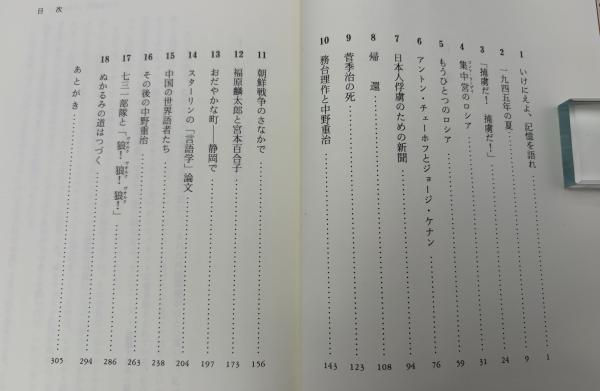 1 いけにえよ、記憶を語れ 1
2 一九四五年の夏 9
3 「捕虜だ! 捕虜だ!」 24
4 集中営のロシア 31
5 もうひとつのロシア 59
6 アントン・チェーホフとジョージ・ケナン 76
7 日本人俘虜のための新聞 94
8 帰還 108
9 菅季治の死 123
10 務台理作と中野重治 143
目次
11 朝鮮戦争のさなかで 156
12 福原麟太郎と宮本百合子 173
13 おだやかな町――静岡で 197
14 スターリンの「言語学」論文 204
15 中国の世界語者たち 238
16 その後の中野重治 263
17 七三一部隊と「狼! 狼! 狼!」 286
18 ぬかるみの道はつづく 294
あとがき 305